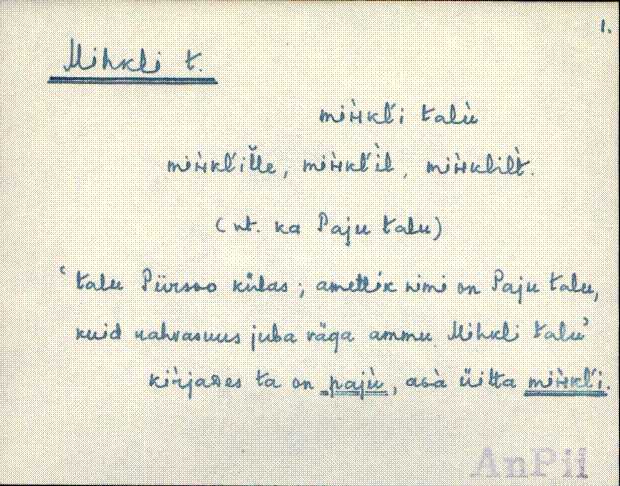 1.
Mihkli t.
mih̀kĺi talù
mih̀kĺil̆le, mih̀kĺìl, mih̀klilt̀.
(vt. ka Paju talu)
‘talu Piirsoo külas; ametlik nimi on Paju talu,
kuid rahvasuus juba väga ammu Mihkli talu’
kir̀jaᴢes ta on pajù, asà üitta mih̀kĺi.
AnPii